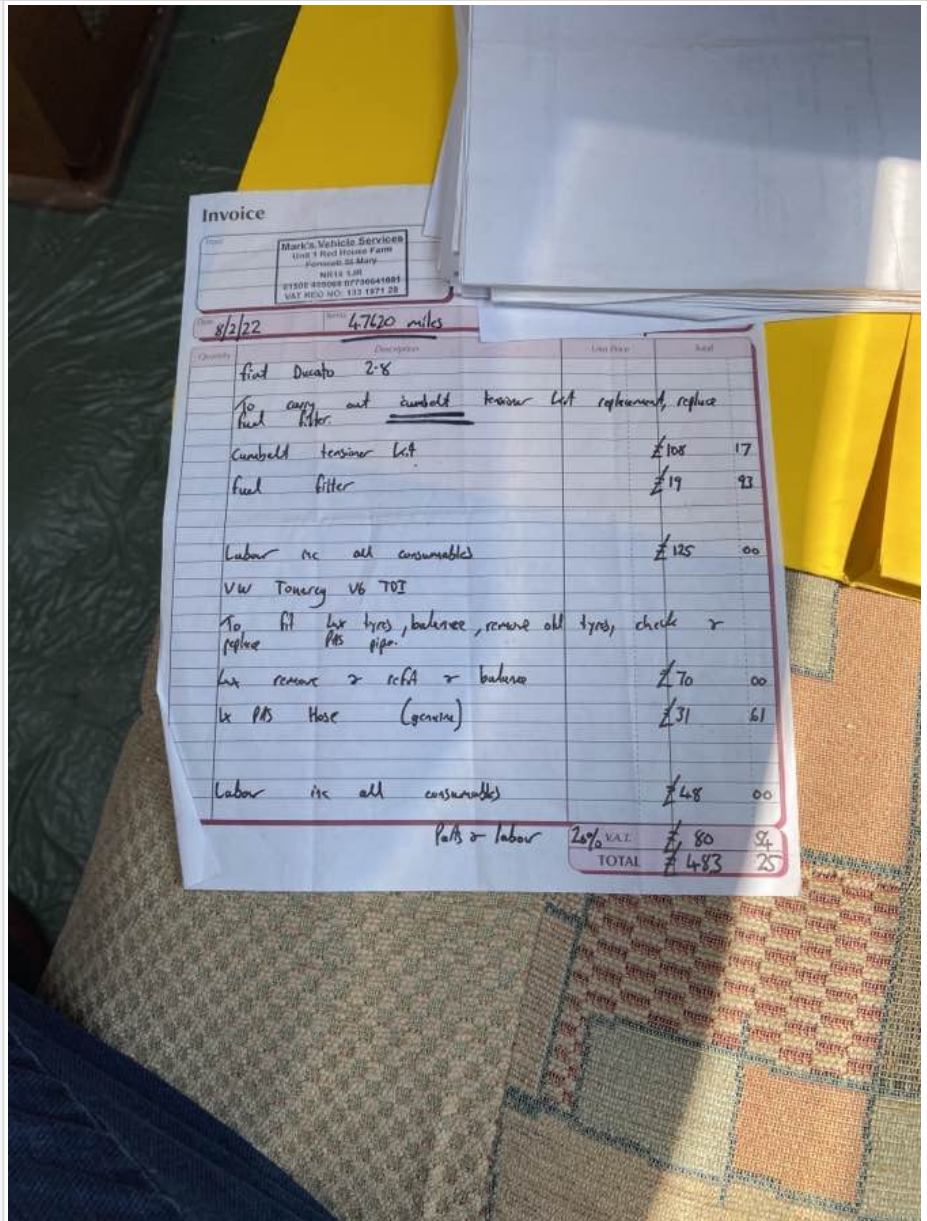 Invoice
Mark's Vehicle Services
Unit 1 Red House Farm
Forncett St Mary
NR16 1JR
VAT REG NO: 133 1571 28
Date 8/2/22 47620 miles
Quantity Description Unit Price Total
fiat Ducato 2.8
To carry out cambelt tensioner kit replacement, replace
fuel filter.
Cambelt tensioner kit £108 17
fuel filter £19 93
Labour inc all consumables £125 00
VW Touareg V6 TDI
To fit 4x tyres, balance, remove old tyres, check &
replace PAS pipe.
4x remove & refit & balance £70 00
1x PAS Hose (genuine) £31 61
Labour inc all consumables £48 00
Parts & labour 20% V.A.T. £80 54
TOTAL £483 25